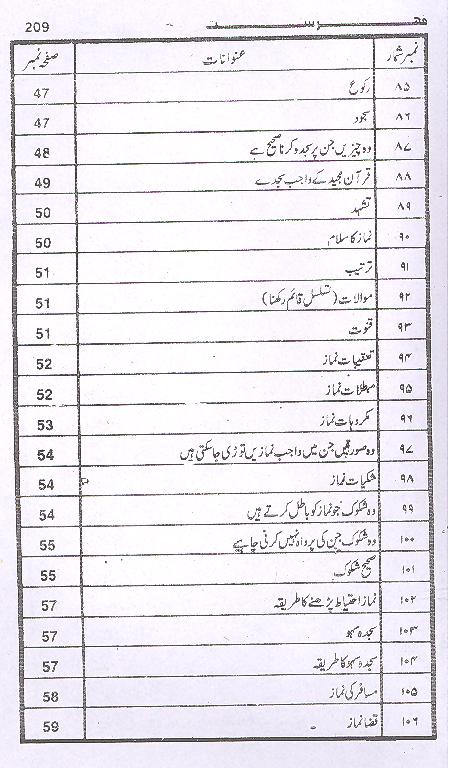 فہرست 209
نمبر شمار عنوانات صفحہ نمبر
۸۵ رکوع 47
۸۶ سجود 47
۸۷ وہ چیزیں جن پر سجدہ کرنا صحیح ہے 48
۸۸ قرآن مجید کے واجب سجدے 49
۸۹ تشہد 50
۹۰ نماز کا سلام 50
۹۱ ترتیب 51
۹۲ موالات (تسلسل قائم رکھنا) 51
۹۳ قنوت 51
۹۴ تعقیبات نماز 52
۹۵ مبطلات نماز 52
۹۶ مکروہات نماز 53
۹۷ وہ صورتیں جن میں واجب نمازیں توڑی جاسکتی ہیں 54
۹۸ شکیات نماز 54
۹۹ وہ شکوک جو نماز کو باطل کرتے ہیں 54
۱۰۰ وہ شکوک جن کی پرواہ نہیں کرنی چاہیے 55
۱۰۱ صحیح شکوک 55
۱۰۲ نماز احتیاط پڑھنے کا طریقہ 57
۱۰۳ سجدہ سہو 57
۱۰۴ سجدہ سہو کا طریقہ 57
۱۰۵ مسافر کی نماز 58
۱۰۶ قضا نماز 59